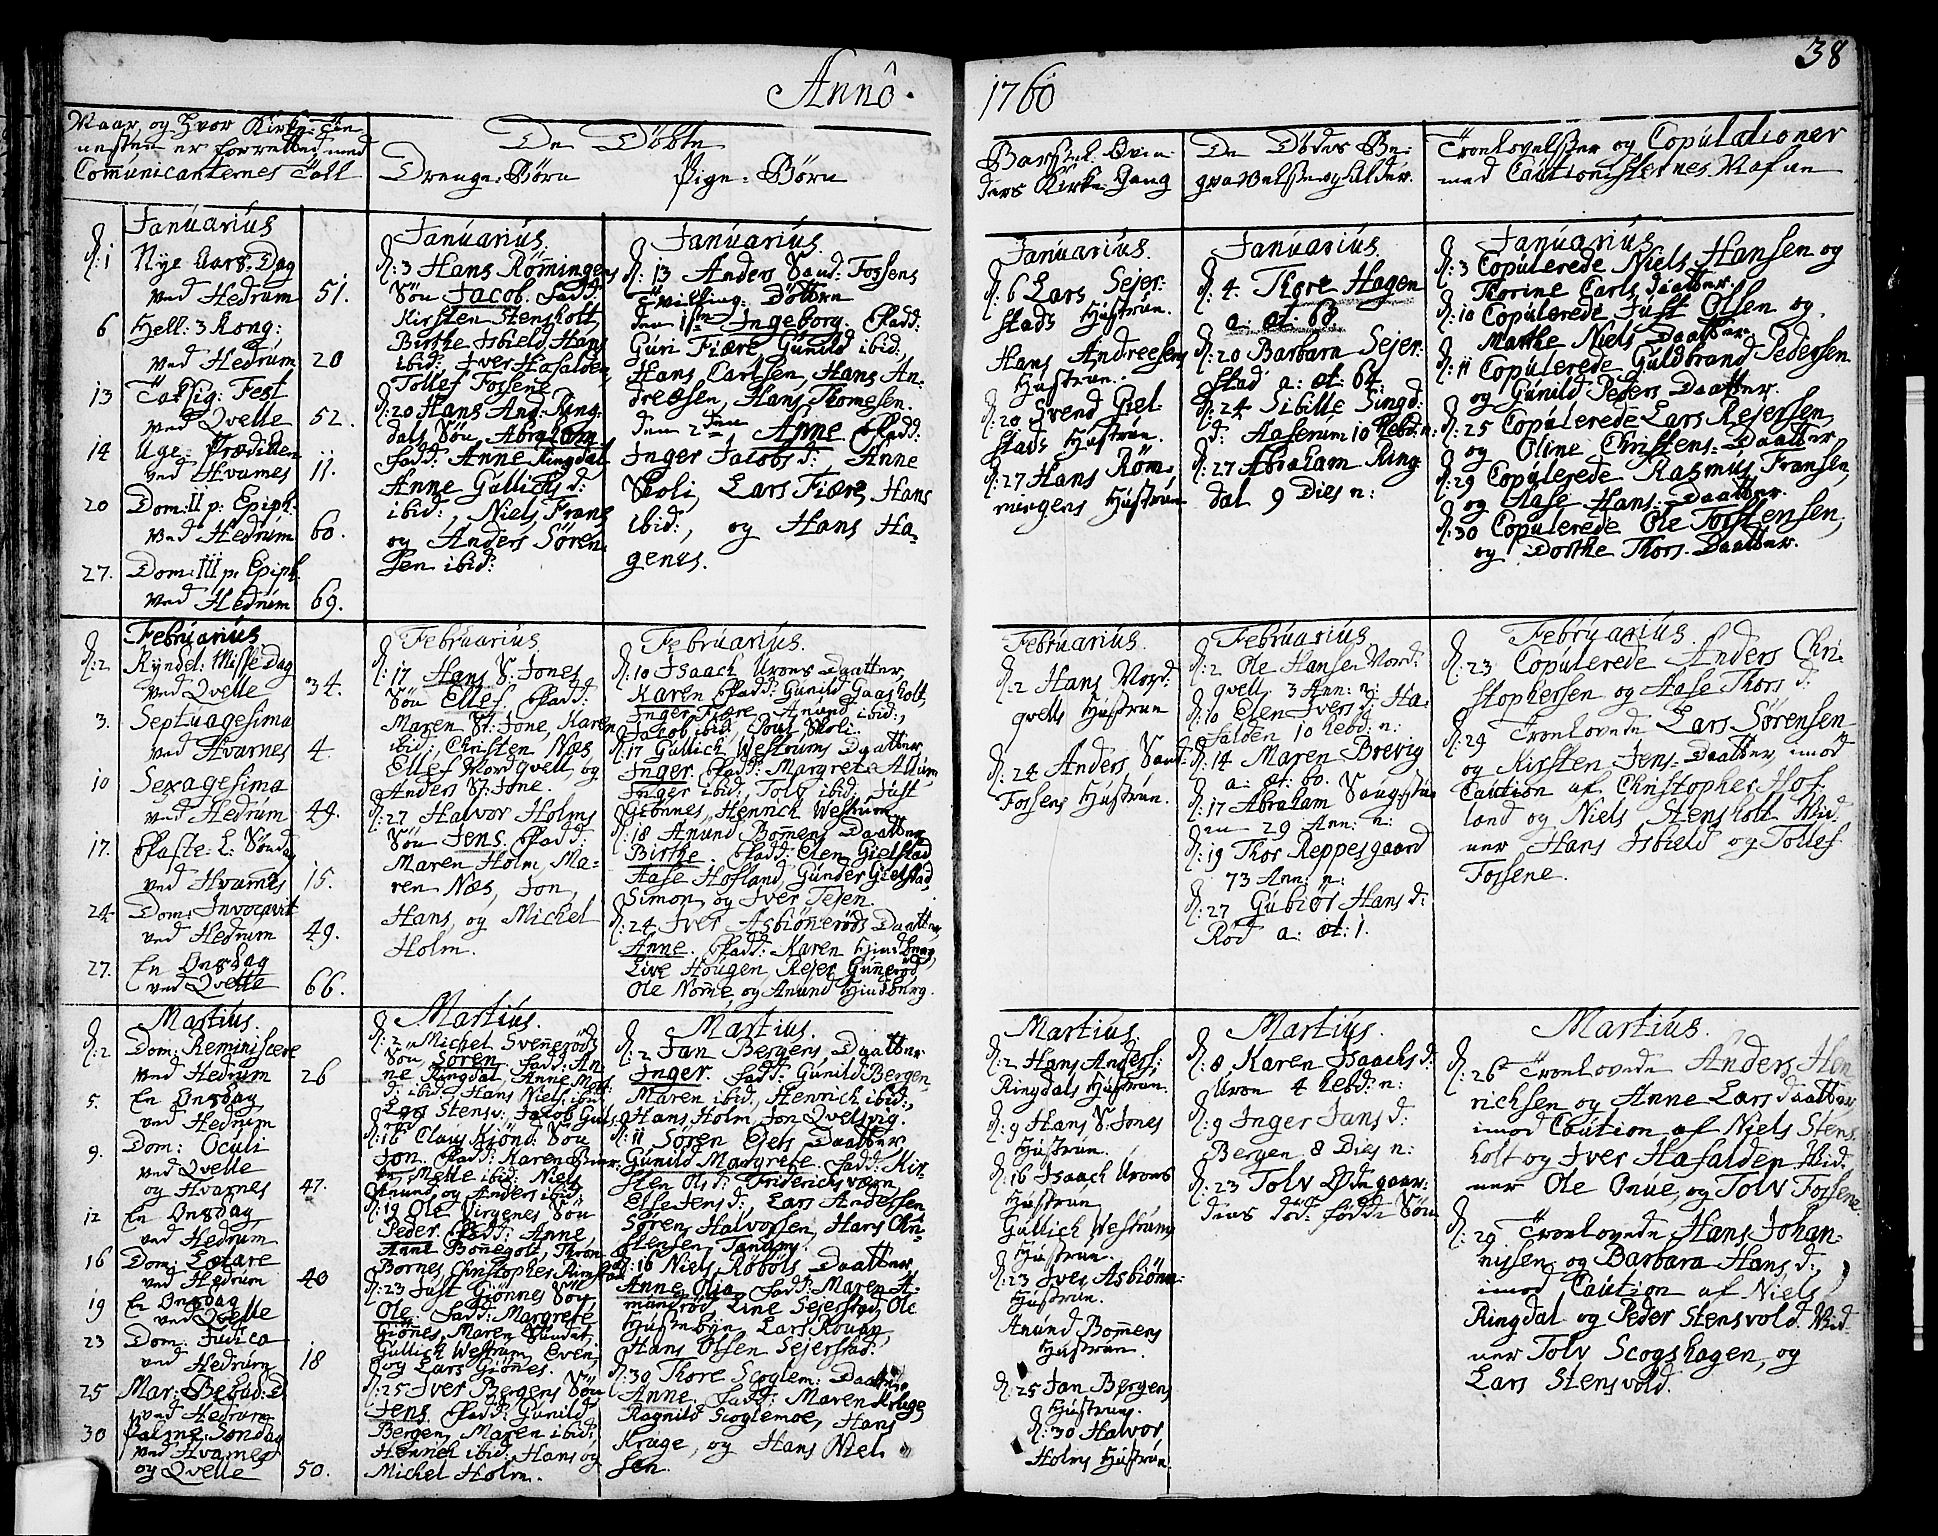 38
Annô.
1760
Naar og hvor Kirke-Tie-
nesten er forrettet med
Comunicanternes Tall
De Döbte
Drenge-Börn
Pige-Börn
Barsel-Qvin-
ders Kirke-Gang
De Dödes Be-
gravelse og Alder.
Troelovelser og Copulationer
med Cautionisternes Nafne
Januarius
d: 1 Nye Aars-Dag
ved Hedrum 51.
6 Hell: 3 Kong:
ved Hedrum 20
13 Taksig: Fest
ved Qvelle 52.
14 Uge-Prædiken
ved Hvarnes 11.
20 Dom: II p: Epiph:
ved Hedrum 60.
27. Dom: III p: Epiph:
ved Hedrum 69.
Januarius.
d: 3 Hans Römingens
Sön Jacob. Fadd:
Kirsten Stensholt,
Birthe Isbield, Hans
ibid:, Iver Hafalden,
Tollef Fossene.
d: 20 Hans And: Ring-
dals Sön, Abraham
Fadd: Anne Ringdal
Anne Gullichs d:
ibid:, Niels Frans
og Anders Sören-
sen ibid:
Januarius.
d: 13 Anders Sand-Fossens
Tvilling-Döttre
den 1ste Ingeborg. Fadd:
Guri Fiære Gunild ibid:,
Hans Carlsen, Hans An-
dreesen, Hans Thomesen.
den 2den Anne Fadd:
Inger Jacobs d: Anne
Skoli, Lars Fiære, Hans
ibid:, og Hans Ha-
genes.
Januarius.
d: 6 Lars Sejer-
stads Hustrue.
Hans Andreesens
Hustrue.
d: 20 Svend Giel-
stads Hustrue.
d: 27 Hans Röm-
mingens Hustrue
Januarius.
d: 4. Thore Hagen
a: æt: 68.
d: 20 Barbara Sejer-
stad a: æt: 64:
d: 24 Sibille Singd:
d: Aaserum 10 hebd: n:
d: 27 Abraham Ring-
dal 9 Dies n:
Januarius
d: 3 Copulerede Niels Hansen og
Thorine Carls Daatter.
d: 10 Copulerede Just Olsen og
Marthe Niels Daatter
d: 11 Copulerede Guldbrand Pedersen
og Gunild Peders Daatter.
d: 25 Copulerede Lars Rejersen
og Oline Christens-Daatter
d: 29 Copulerede Rasmus Fransen,
og Aase Hans-Daatter.
d: 30 Copulerede Ole Torstensen,
og Dorthe Thors-Daatter.
Februarius
d: 2 Kyndel-Misse Dag
ved Qvelle 34.
3. Septuagesima
ved Hvarnes 4.
10 Sexagesima
ved Hedrum 49.
17. Faste-L: Söndag
ved Hvarnes 15.
24. Dom: Invocavit
ved Hedrum 49.
27. En Onsdag
ved Qvelle 66.
Februarius.
d: 17 Hans S. Jones
Sön Ellef. Fadd:
Maren St: Jone, Karen
ibid:, Christen Næs
Ellef Nordqvell, og
Anders St: Jone.
d: 27 Halvor Holms
Sön Jens. Fadd:
Maren Holm, Ma-
ren Næs, Jon,
Hans, og Michel
Holm.
Februarius.
d: 10 Isaach Urons Daatter,
Karen Fadd: Gunild Gaasholt,
Inger Fiære, Anund ibid:,
Jacob ibid:, Poul Skoli.
d: 17 Gullich Westrums Daatter
Inger. Fadd: Margrete Allum
Inger ibid:, Tolv ibid:, Just
Giönnes, Henrich Westrum.
d: 18 Anund Bomens Daatter
Birthe. Fadd: Elen Gielstad
Aase Hofland, Gunder Gielstad,
Simon, og Iver Tejen.
d: 24 Iver Asbiönröds Daatter,
Anne. Fadd: Karen Hundberg,
Live Hougen, Rejer Gunneröd,
Ole Nomme, og Anund Hundberg.
Februarius.
d: 2 Hans Nord-
qvells Hustrue
d: 24 Anders Sand-
Fossens Hustrue.
Februarius.
d: 2 Ole Hansen Nord-
qvell 3 Ann: n:
d: 10 Elen Ivers d: Ha-
falden 10 hebd: n:
d: 14 Maren Brevig
a: æt: 60.
d: 17 Abraham
29 Ann: n:
d: 19 Thor Reppesgaard
73 Ann: n:
d: 27 Gubiör Hans d:
Röd a: æt: 1.
Februarius.
d: 23 Copulerede Anders Chri-
stophersen og Aase Thors d:
d: 29 Troelovede Lars Sörensen
og Kirsten Jens-Daatter, imod
Caution af Christopher Hof-
land og Niels Stensholt. Vid-
ner Hans Isbield og Tollef
Fossene.
Martius.
d: 2 Dom: Reminiscere
ved Hedrum 26
5. En Onsdag
ved Hedrum
9. Dom: Oculi
ved Qvelle
og Hvarnes 47.
12 En Onsdag
ved Hedrum
16 Dom: Lætare
ved Hedrum 40
19 En Onsdag
ved Qvelle
23 Dom: Judica
ved Hedrum 18
25 Mar: Bebud: D.
ved Hedrum
30 Palme-Söndag
ved Hvarnes
og Qvelle 50.
Martius.
d: 2 Michel Sveneröds
Sön Sören Fadd: An-
ne Ringdal, Anne
d: ibid: Hans Niels: ibid:
Lars Stensv: Jacob
d: 16 Claus Kiönd: Sön
Jon. Fadd: Karen
Mette ibid: Niels
Anund, og Anders ibid:
d: 19 Ole Virgenes Sön
Peder. Fadd: Anne,
Anne Bonnegolt, Thron
Bornes, Christopher
d: 23 Just Giönnes Sön
Ole. Fadd: Margrete
Giönes, Maren Sundet,
Gullich Westrum, Even
og Lars Giönnes.
d: 25 Iver Bergens Sön
Jens. Fadd: Gunild
Bergen, Maren ibid:
Henrich ibid: Hans og
Michel Holm.
Martius.
d: 2 Jan Bergens Daatter
Inger. Fadd: Gunild Bergen
Maren ibid:, Henrich ibid:,
Hans Holm, Jon Qvelsvig.
d: 11 Sören Ejels Daatter
Gunild Margrete. Fadd: Kir-
sten Ols d: Friderichsværn,
Elle Jens d: Lars Andersen
Sören Halvorsen, Hans Chri-
stensen, Tangen.
d: 16 Niels Röböls Daatter
Anne Olia. Fadd: Maren A-
munderöd, Line Sejerstad, Ole
Husebye, Lars Rouan,
Hans Olsen Sejerstad.
d: 30 Thore Scoglem: Daatter
Anne. Fadd: Maren Kruge,
Ragnild Scoglemoe, Hans
Kruge, og Hans Niel-
sen.
Martius.
d: 2 Hans Anders:
Ringdals Hustrue.
d: 9 Hans S. Jones
Hustrue.
d: 16 Isaach Urons
Hustrue
Gullich Westrums
Hustrue.
d: 23 Iver Asbiönr:
Hustrue.
Anund Bomens
Hustrue.
d: 25 Jan Bergens
Hustrue.
d: 30 Halvor
Holms Hustrue.
Martius.
d: 8 Karen Isaachs d:
Uron 4 hebd: n:
d: 9 Inger Jans d:
Bergen 8 Dies n:
d: 23 Tolv Ödegaar-
dens död-födde Sön
Martius.
d: 26 Troelovede Anders Hen-
richsen og Anne Lars Daatter
imod Caution af Niels Stens-
holt og Iver Hafalden. Vid-
ner Ole Onue, og Tolv Fossene.
d: 29 Troelovede Hans Johan-
nissen og Barbara Hans d:,
imod Caution af Niels
Ringdal og Peder Stensvold. Vid-
ner Tolv Scogshagen, og
Lars Stensvold.